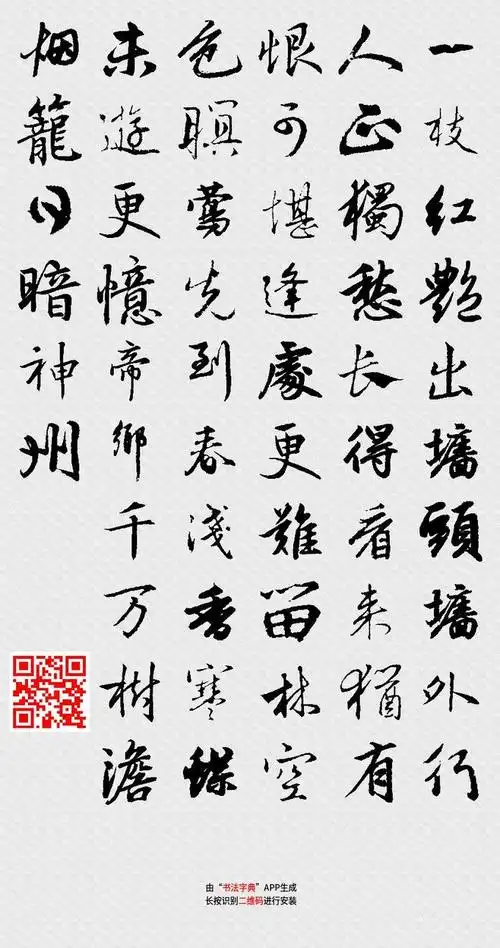 一枝红艷出墙頭墙外行
人正獨愁长得看来猶有
恨可堪逢處更難留林空
色暝莺先到春淺香寒蝶
未遊更憶帝鄉千万樹澹
烟籠日暗神州
由“书法字典”APP生成
长按识别二维码进行安装